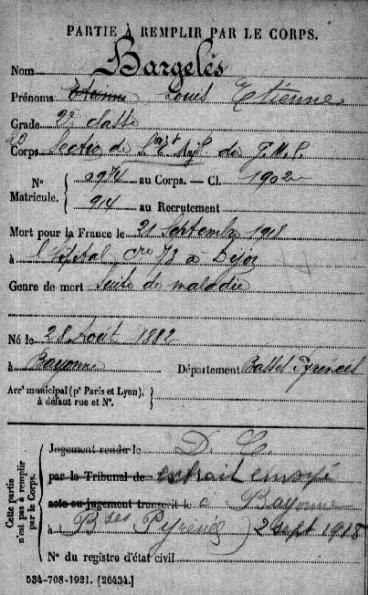 PARTIE À REMPLIR PAR LE CORPS.
Nom Bargelès
Prénoms Etienne Louis Etienne
Grade 2e classe
Corps Section de d' de
N° 2974 au Corps. — Cl. 1902
Matricule. 914 au Recrutement
Mort pour la France le 21 Septembre 1918
à l'hôpital 73 à Dijon
Genre de mort Suite de maladie
Né le 28 Août 1882
à Bayonne Département Basses Pyrénées
Arrt municipal (pr Paris et Lyon), à défaut rue et N°.
Cette partie n'est pas à remplir par le Corps.
Jugement rendu le D. C.
par le Tribunal de extrait envoyé
acte ou jugement transcrit le à Bayonne
à Bses Pyrénées 2 Sept 1918
N° du registre d'état civil
534-708-1921. [26434.]